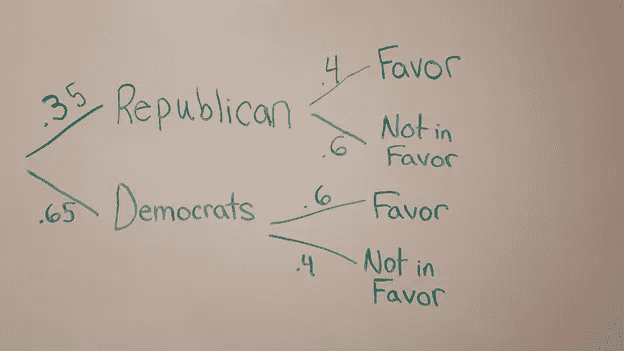 .35
Republican
.4
Favor
.6
Not in
Favor
.65
Democrats
.6
Favor
.4
Not in
Favor